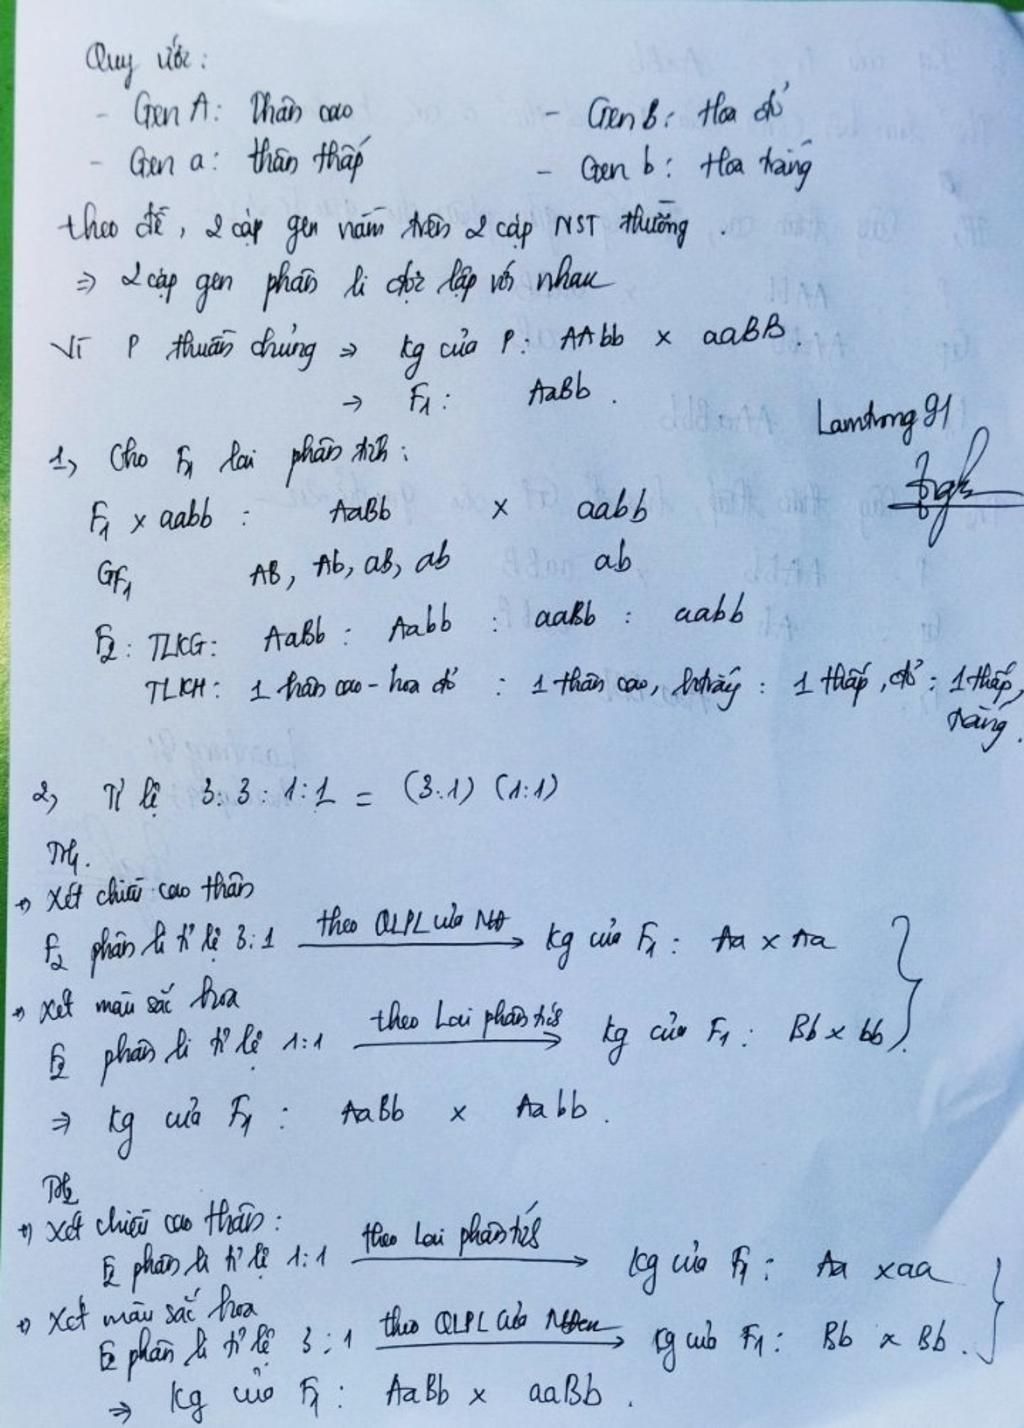 Quy ước:
- Gen A: Thân cao - Gen B: Hoa đỏ
- Gen a: thân thấp - Gen b: Hoa trắng
theo đề, 2 cặp gen nằm trên 2 cặp NST thường.
⇒ 2 cặp gen phân li độc lập với nhau
Vì P thuần chủng ⇒ kg của P: AAbb × aaBB.
→ F1: AaBb.
Lamtrong91
1, Cho F1 lai phân tích:
F1 × aabb: AaBb × aabb
GF1 AB, Ab, aB, ab ab
F2: TLKG: AaBb : Aabb : aaBb : aabb
TLKH: 1 thân cao-hoa đỏ : 1 thân cao, htrắng : 1 thấp, đỏ : 1 thấp,
trắng.
2, Tỉ lệ 3:3:1:1 = (3:1) (1:1)
TH1.
+) Xét chiều cao thân
F2 phân li tỉ lệ 3:1 theo QLPL của MĐ → kg của F1: Aa × Aa
+) Xét màu sắc hoa
F2 phân li tỉ lệ 1:1 theo Lai phân tích → kg của F1: Bb × bb.
⇒ kg của F1: AaBb × Aabb.
TH2
+) Xét chiều cao thân:
F2 phân li tỉ lệ 1:1 theo Lai phân tích → kg của F1: Aa × aa
+) Xét màu sắc hoa
F2 phân li tỉ lệ 3:1 theo QLPL của → kg của F1: Bb × Bb.
⇒ kg của F1: AaBb × aaBb.